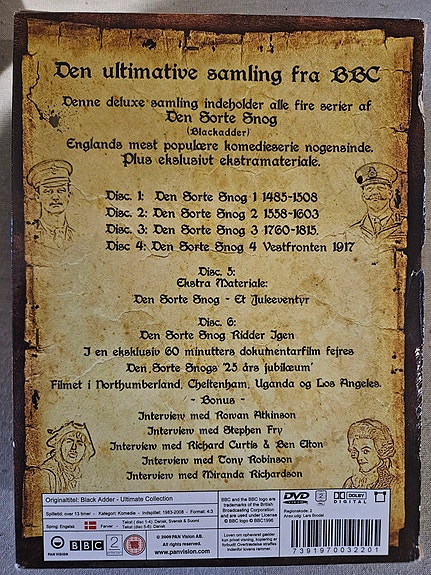 Den ultimative samling fra BBC
Denne deluxe samling indeholder alle fire serier af
Den Sorte Snog
(Blackadder)
Englands mest populære komedieserie nogensinde.
Plus ekslusivt ekstramateriale.
Disc. 1: Den Sorte Snog 1 1485-1508
Disc. 2: Den Sorte Snog 2 1558-1603
Disc. 3: Den Sorte Snog 3 1760-1815.
Disc 4: Den Sorte Snog 4 Vestfronten 1917
Disc. 5:
Ekstra Materiale:
Den Sorte Snog - Et Juleeventyr
Disc. 6:
Den Sorte Snog Ridder Igen
I en eksklusiv 60 minutters dokumentarfilm fejres
Den Sorte Snogs '25 års jubilæum'
Filmet i Northumberland, Cheltenham, Uganda og Los Angeles.
- Bonus -
Interview med Rowan Atkinson
Interview med Stephen Fry
Interview med Richard Curtis & Ben Elton
Interview med Tony Robinson
Interview med Miranda Richardson
Originaltitel: Black Adder - Ultimate Collection
Spilletid: over 13 timer - Kategori: Komedie - Indspillet: 1983-2008 - Format: 4:3
Sprog: Engelsk Farver Tekst (disc 1-4): Dansk, Svensk & Suomi
Tekst (disc 5-6): Dansk
PAN VISION
BBC
2
© 2009 PAN Vision AB.
All rights reserved.
www.panvision.com
BBC and the BBC logo are
trademarks of the British
Broadcasting Corporation
and are used under License
© BBC logo © BBC1996
Loven om ophavsret gælder
kun privat visning, kopiering er
forbudt. Overtrædelse straffes
indenfor lovens rammer.
DVD
VIDEO
2
DOLBY
DIGITAL
Regionskode: 2
Ansv.udg: Lars Brodel
7391970032201